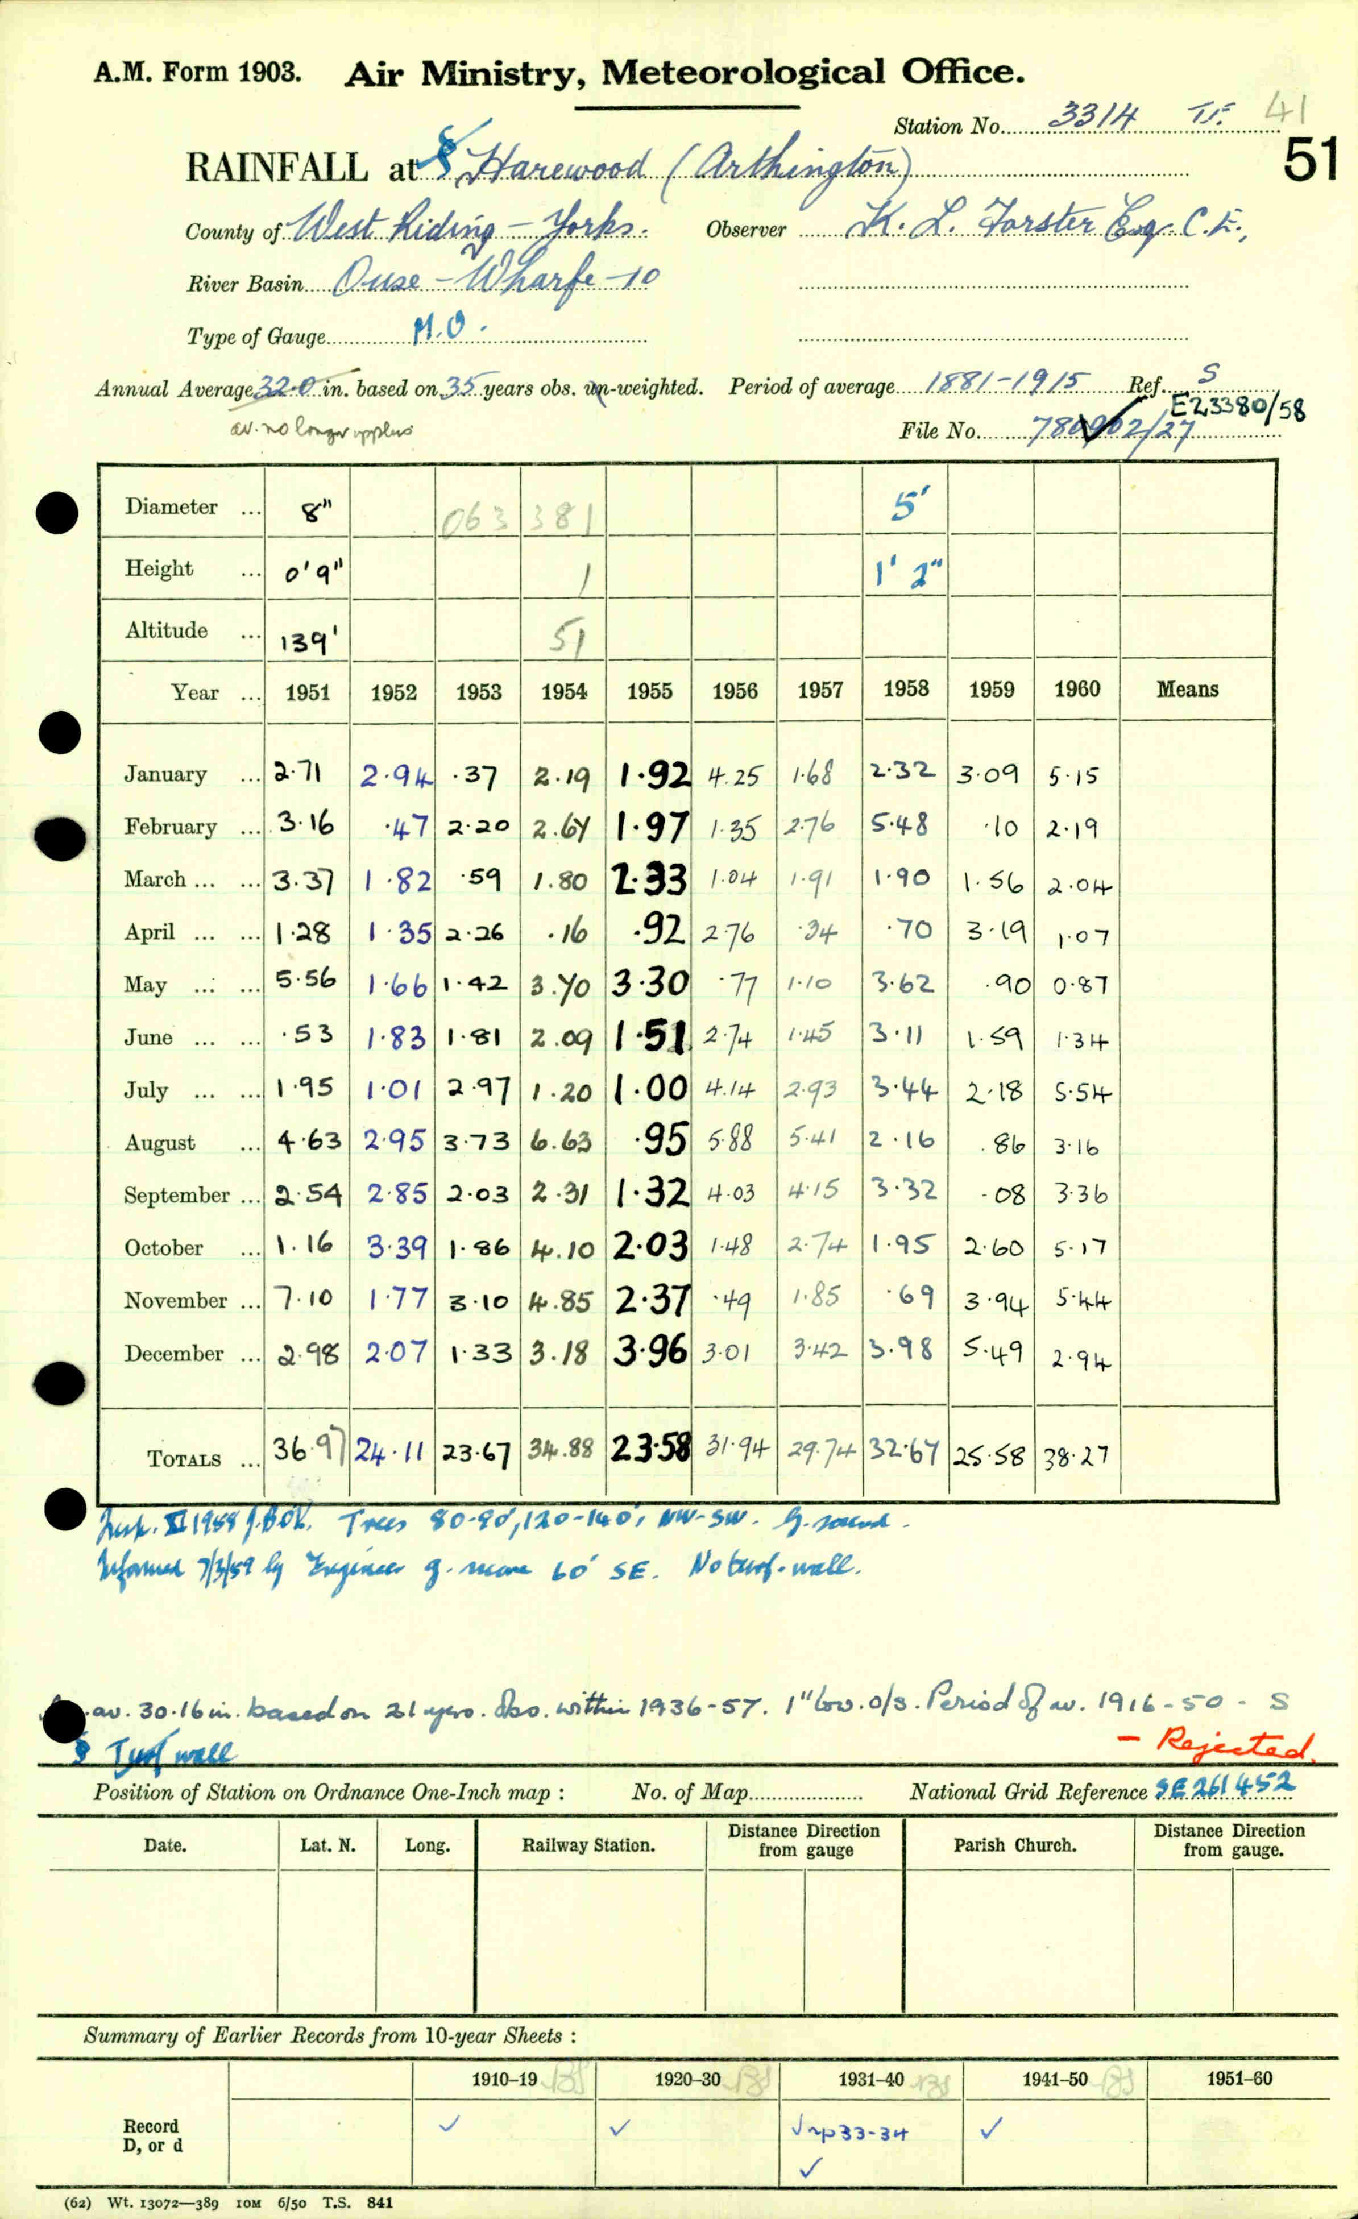 A.M. Form 1903. Air Ministry, Meteorological Office.
Station No. 3314 41
51
RAINFALL at § Harewood (Arthington)
County of West Riding - Yorks. Observer K. L. Forster Esq. C.E.,
River Basin Ouse - Wharfe - 10
Type of Gauge M.O.
Annual Average 32.0 in. based on 35 years obs. un-weighted. Period of average 1881-1915 Ref. S
E23380/58
av. no longer applies File No. 780902/27
Diameter ... 8" 063 381 5'
Height ... 0'9" 1 1' 2"
Altitude ... 139' 51
Year ... 1951 1952 1953 1954 1955 1956 1957 1958 1959 1960 Means
January ... 2.71 2.94 .37 2.19 1.92 4.25 1.68 2.32 3.09 5.15
February ... 3.16 .47 2.20 2.67 1.97 1.35 2.76 5.48 .10 2.19
March ... ... 3.37 1.82 .59 1.80 2.33 1.04 1.91 1.90 1.56 2.04
April ... ... 1.28 1.35 2.26 .16 .92 2.76 .34 .70 3.19 1.07
May ... ... 5.56 1.66 1.42 3.70 3.30 .77 1.10 3.62 .90 0.87
June ... ... .53 1.83 1.81 2.09 1.51 2.74 1.45 3.11 1.59 1.34
July ... ... 1.95 1.01 2.97 1.20 1.00 4.14 2.93 3.44 2.18 5.54
August ... 4.63 2.95 3.73 6.63 .95 5.88 5.41 2.16 .86 3.16
September ... 2.54 2.85 2.03 2.31 1.32 4.03 4.15 3.32 .08 3.36
October ... 1.16 3.39 1.86 4.10 2.03 1.48 2.74 1.95 2.60 5.17
November ... 7.10 1.77 3.10 4.85 2.37 .49 1.85 .69 3.94 5.44
December ... 2.98 2.07 1.33 3.18 3.96 3.01 3.42 3.98 5.49 2.94
TOTALS ... 36.97 24.11 23.67 34.88 23.58 31.94 29.74 32.67 25.58 38.27
Insp. XI 1958 Trees 80-90', 120-140', NW-SW. G. sound.
Informed 7/3/59 by Engineer g. move 60' SE. No turf-wall.
av. 30.16 in. based on 21 yrs. obs. within 1936-57. 1" low. o/s. Period of av. 1916-50 - S
- Rejected.
§ Turf wall
Position of Station on Ordnance One-Inch map : No. of Map National Grid Reference SE 261452
Date. Lat. N. Long. Railway Station. Distance Direction from gauge Parish Church. Distance Direction from gauge.
Summary of Earlier Records from 10-year Sheets :
1910–19 1920–30 1931–40 1941–50 1951–60
Record D, or d ✓ ✓ ✓ np 33-34 ✓ ✓
(62) Wt. 13072—389 10M 6/50 T.S. 841